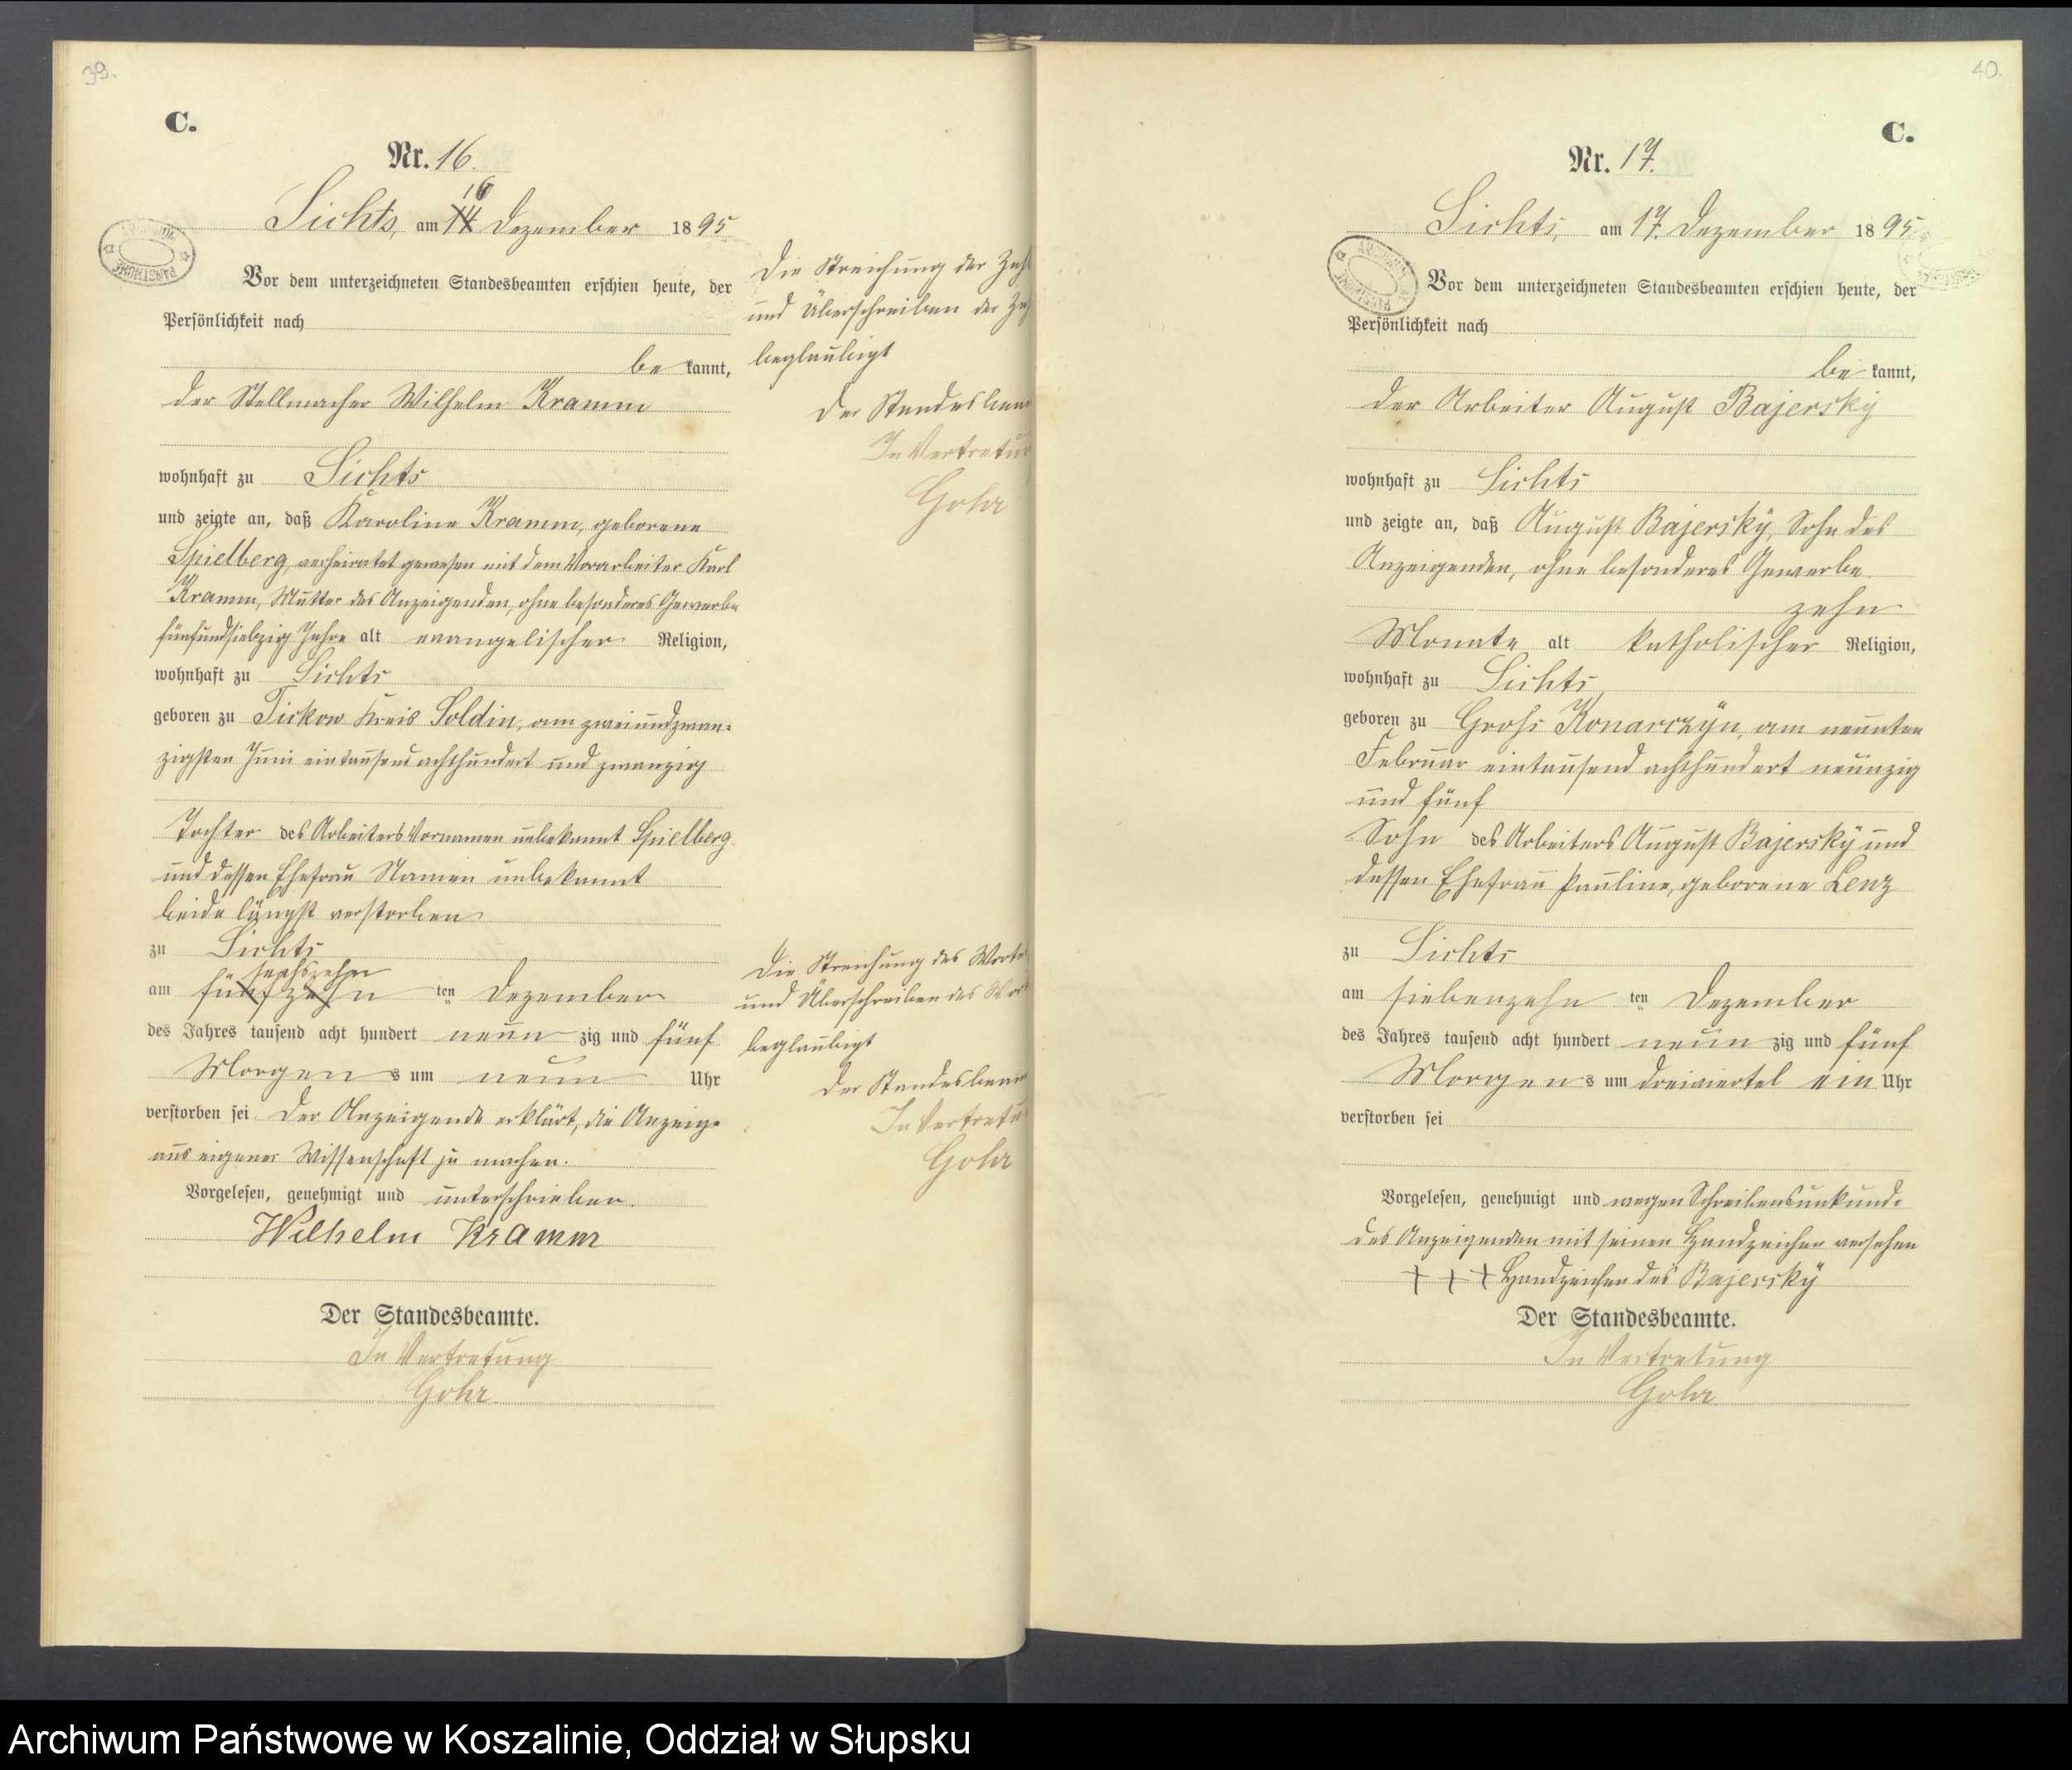 39.
C.
Nr. 16.
Sichts, am 14 16 Dezember 1895
Vor dem unterzeichneten Standesbeamten erschien heute, der
Persönlichkeit nach
be kannt,
der Stellmacher Wilhelm Kramm
wohnhaft zu Sichts
und zeigte an, daß Karoline Kramm, geborene
Spielberg, verheiratet gewesen mit dem Vorarbeiter Karl
Kramm, Mutter des Anzeigenden, ohne besonderes Gewerbe
fünfundsiebzig Jahre alt evangelischer Religion,
wohnhaft zu Sichts
geboren zu Kreis Soldin, am zweiundzwan-
zigsten Juni eintausend achthundert und zwanzig
Tochter des Arbeiters Vornamen unbekannt Spielberg
und dessen Ehefrau Namen unbekannt
beide längst verstorben
zu Sichts
sechszehn
am fünfzehn ten Dezember
des Jahres tausend acht hundert neun zig und fünf
Morgens um neun Uhr
verstorben sei. Der Anzeigende erklärt, die Anzeige
aus eigener Wissenschaft zu machen.
Vorgelesen, genehmigt und unterschrieben.
Wilhelm Kramm
Der Standesbeamte.
In Vertretung
Gohr
Die Streichung der Zahl
und Überschreiben der
beglaubigt
Der Standesbeam
In Vertretun
Gohr
Die Streichung des Worte
und Überschreiben des Wor
beglaubigt
Der Standesbeam
In Vertretu
Gohr
40.
C.
Nr. 17.
Sichts, am 17. Dezember 1895
Vor dem unterzeichneten Standesbeamten erschien heute, der
Persönlichkeit nach
be kannt,
der Arbeiter August Bajersky
wohnhaft zu Sichts
und zeigte an, daß August Bajersky, Sohn des
Anzeigenden, ohne besonderes Gewerbe
zehn
Monate alt katholischer Religion,
wohnhaft zu Sichts
geboren zu Groß Konarczyn, am neunten
Februar eintausend achthundert neunzig
und fünf
Sohn des Arbeiters August Bajersky und
dessen Ehefrau Pauline, geborene Lenz
zu Sichts
am siebenzehn ten Dezember
des Jahres tausend acht hundert neun zig und fünf
Morgens um dreiviertel ein Uhr
verstorben sei
Vorgelesen, genehmigt und wegen Schreibensunkunde
des Anzeigenden mit seinen Handzeichen versehen
+ + + Handzeichen des Bajersky
Der Standesbeamte.
In Vertretung
Gohr
Archiwum Państwowe w Koszalinie, Oddział w Słupsku